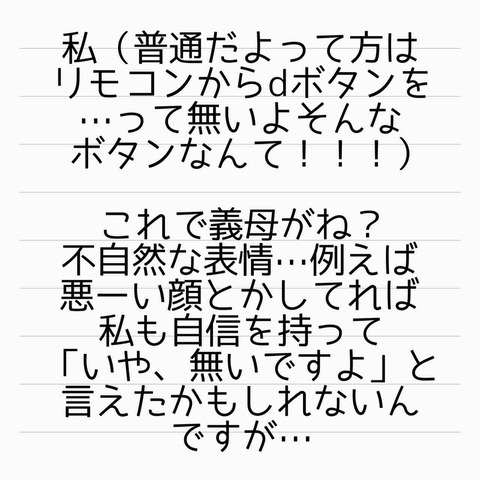 私（普通だよって方は
リモコンからdボタンを
…って無いよそんな
ボタンなんて！！！）
これで義母がね？
不自然な表情…例えば
悪ーい顔とかしてれば
私も自信を持って
「いや、無いですよ」と
言えたかもしれないん
ですが…